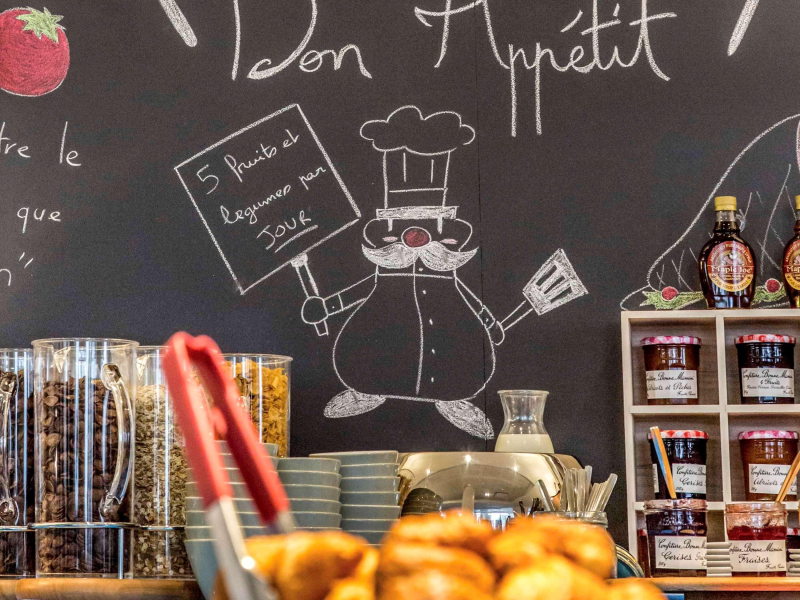 Bon Appétit
tre le
que
5 fruits et
légumes par
JOUR
Maple Joe
Confiture Bonne Maman
Abricots Pêches
Confiture Bonne Maman
4 Fruits
Confiture Bonne Maman
Cerises
Confiture Bonne Maman
Abricots
Confiture Bonne Maman
Cerises
Confiture Bonne Maman
Fraises